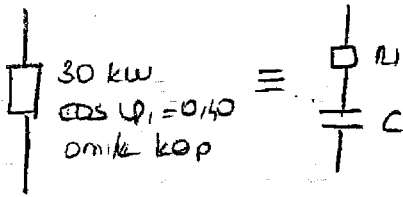 30 kW
cos φ₁ = 0,40
omik kap
≡
R₁
C